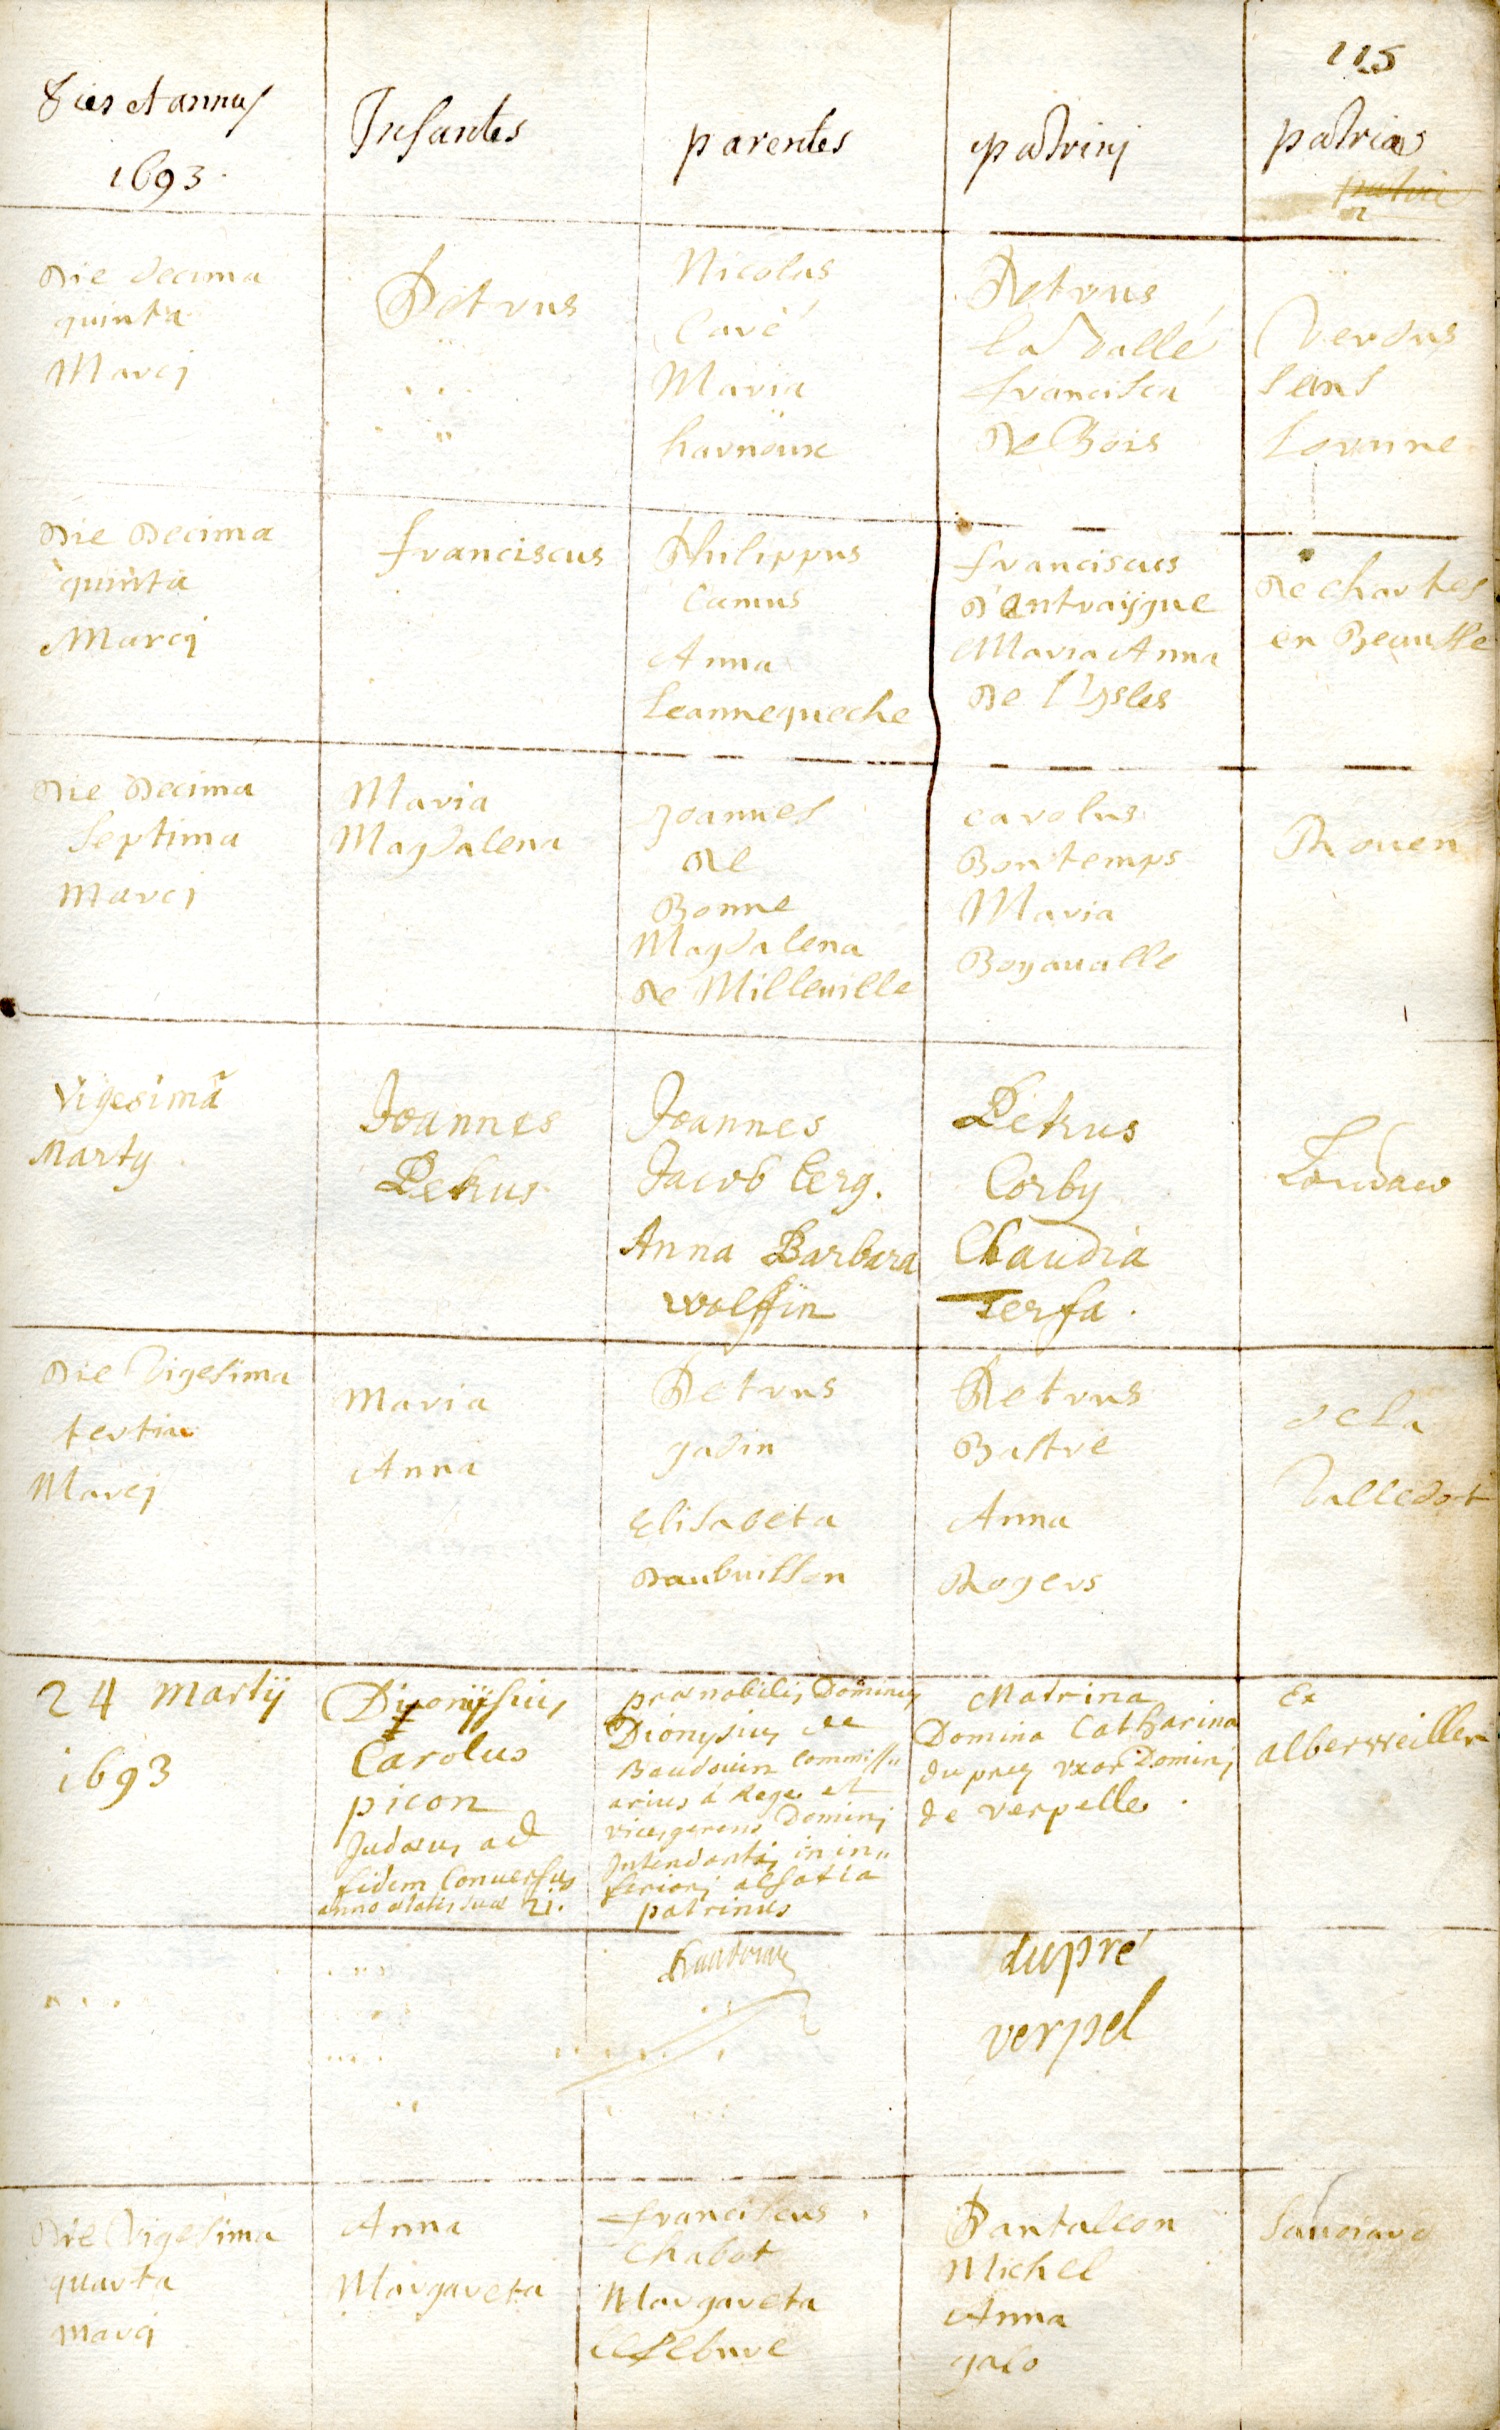 115
Dies et annus
1693
Infantes
parentes
patrinj
patria
Die decima
quinta
Marcj
Petrus
Nicolas
Cavé
Maria
harnoux
Petrus
la Vallé
francisca
De Bois
Verdus
Sens
Loraine
Die Decima
quinta
Marcj
franciscus
Philippus
Camus
Anna
Leannequeche
franciscus
d'Entraijgue
Maria Anna
De l'ysles
De chartes
en Beausse
Die Decima
Septima
Marcj
Maria
Magdalena
Joannes
De
Bonne
Magdalena
De Milleville
carolus
Bontemps
Maria
Boyaualle
Rouen
Vigesimâ
Martÿ
Joannes
Petrus
Joannes
Jacob Cerg.
Anna Barbara
Wolffin
Petrus
Corby
Claudia
Terfa.
Landaw
Die Vigesima
tertia
Marcj
Maria
Anna
Petrus
gadin
Elisabeta
Daubuisson
Petrus
Bastre
Anna
Rogers
de la
Valledot
24 Martÿ
1693
Dionÿsius
Carolus
picon
Judæus ad
fidem Conversus
anno ætatis suæ 21.
prænobilis Dominus
Dionysius de
Baudouin Commissu
arius á Rege et
vices gerens Dominj
Intendantis in in
feriorj alsatia
patrinus
Matrina
Domina Catharina
duprez vxor Dominj
de verpelle.
Ex
alberweiller
Baudouin
dupré
verpel
Die Vigesima
quarta
marcj
Anna
Margareta
franciscus
Chabot
Margareta
lefebure
Pantaleon
Michel
Anna
galo
Sauoiard